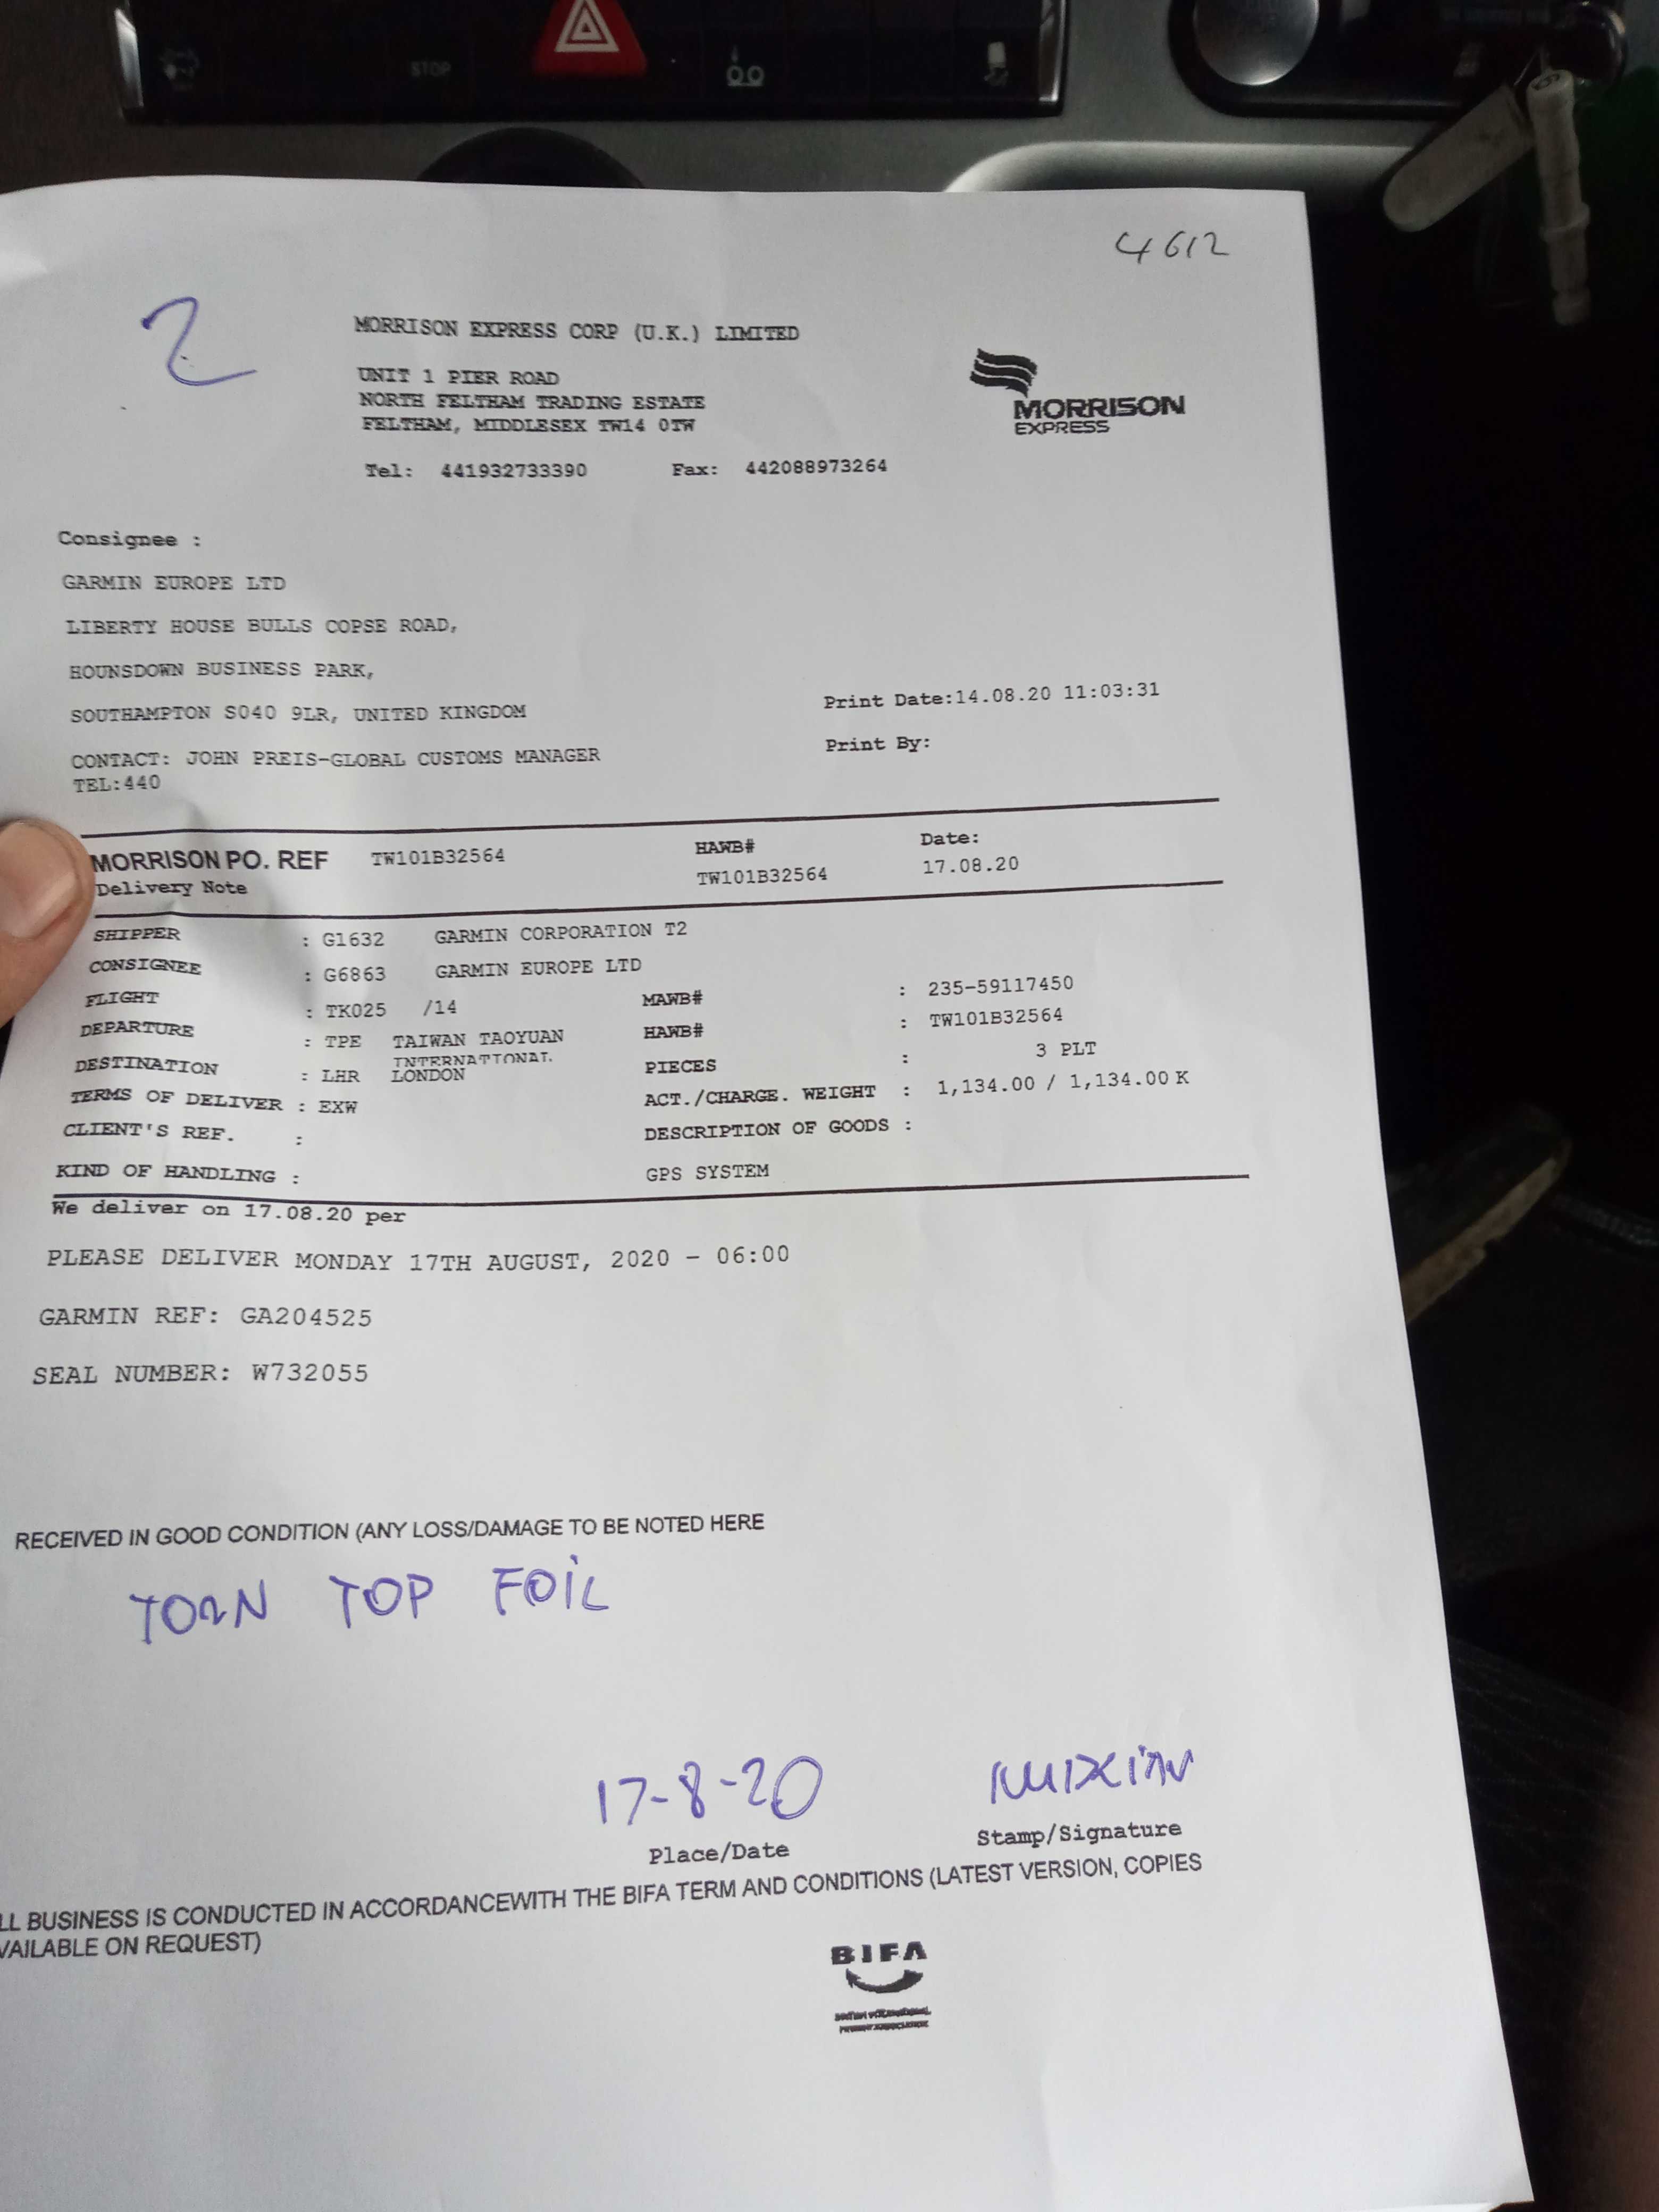 STOP
4612
2
MORRISON EXPRESS CORP (U.K.) LIMITED
UNIT 1 PIER ROAD
NORTH FELTHAM TRADING ESTATE
FELTHAM, MIDDLESEX TW14 0TW
Tel: 441932733390 Fax: 442088973264
MORRISON
EXPRESS
Consignee :
GARMIN EUROPE LTD
LIBERTY HOUSE BULLS COPSE ROAD,
HOUNSDOWN BUSINESS PARK,
SOUTHAMPTON SO40 9LR, UNITED KINGDOM
CONTACT: JOHN PREIS-GLOBAL CUSTOMS MANAGER
TEL:440
Print Date:14.08.20 11:03:31
Print By:
MORRISON PO. REF TW101B32564 HAWB# Date:
Delivery Note TW101B32564 17.08.20
SHIPPER : G1632 GARMIN CORPORATION T2
CONSIGNEE : G6863 GARMIN EUROPE LTD
FLIGHT : TK025 /14 MAWB# : 235-59117450
DEPARTURE : TPE TAIWAN TAOYUAN INTERNATIONAL HAWB# : TW101B32564
DESTINATION : LHR LONDON PIECES : 3 PLT
TERMS OF DELIVER : EXW ACT./CHARGE. WEIGHT : 1,134.00 / 1,134.00 K
CLIENT'S REF. : DESCRIPTION OF GOODS :
KIND OF HANDLING : GPS SYSTEM
We deliver on 17.08.20 per
PLEASE DELIVER MONDAY 17TH AUGUST, 2020 - 06:00
GARMIN REF: GA204525
SEAL NUMBER: W732055
RECEIVED IN GOOD CONDITION (ANY LOSS/DAMAGE TO BE NOTED HERE
TORN TOP FOIL
17-8-20
Place/Date Stamp/Signature
LL BUSINESS IS CONDUCTED IN ACCORDANCEWITH THE BIFA TERM AND CONDITIONS (LATEST VERSION, COPIES
VAILABLE ON REQUEST)
BIFA